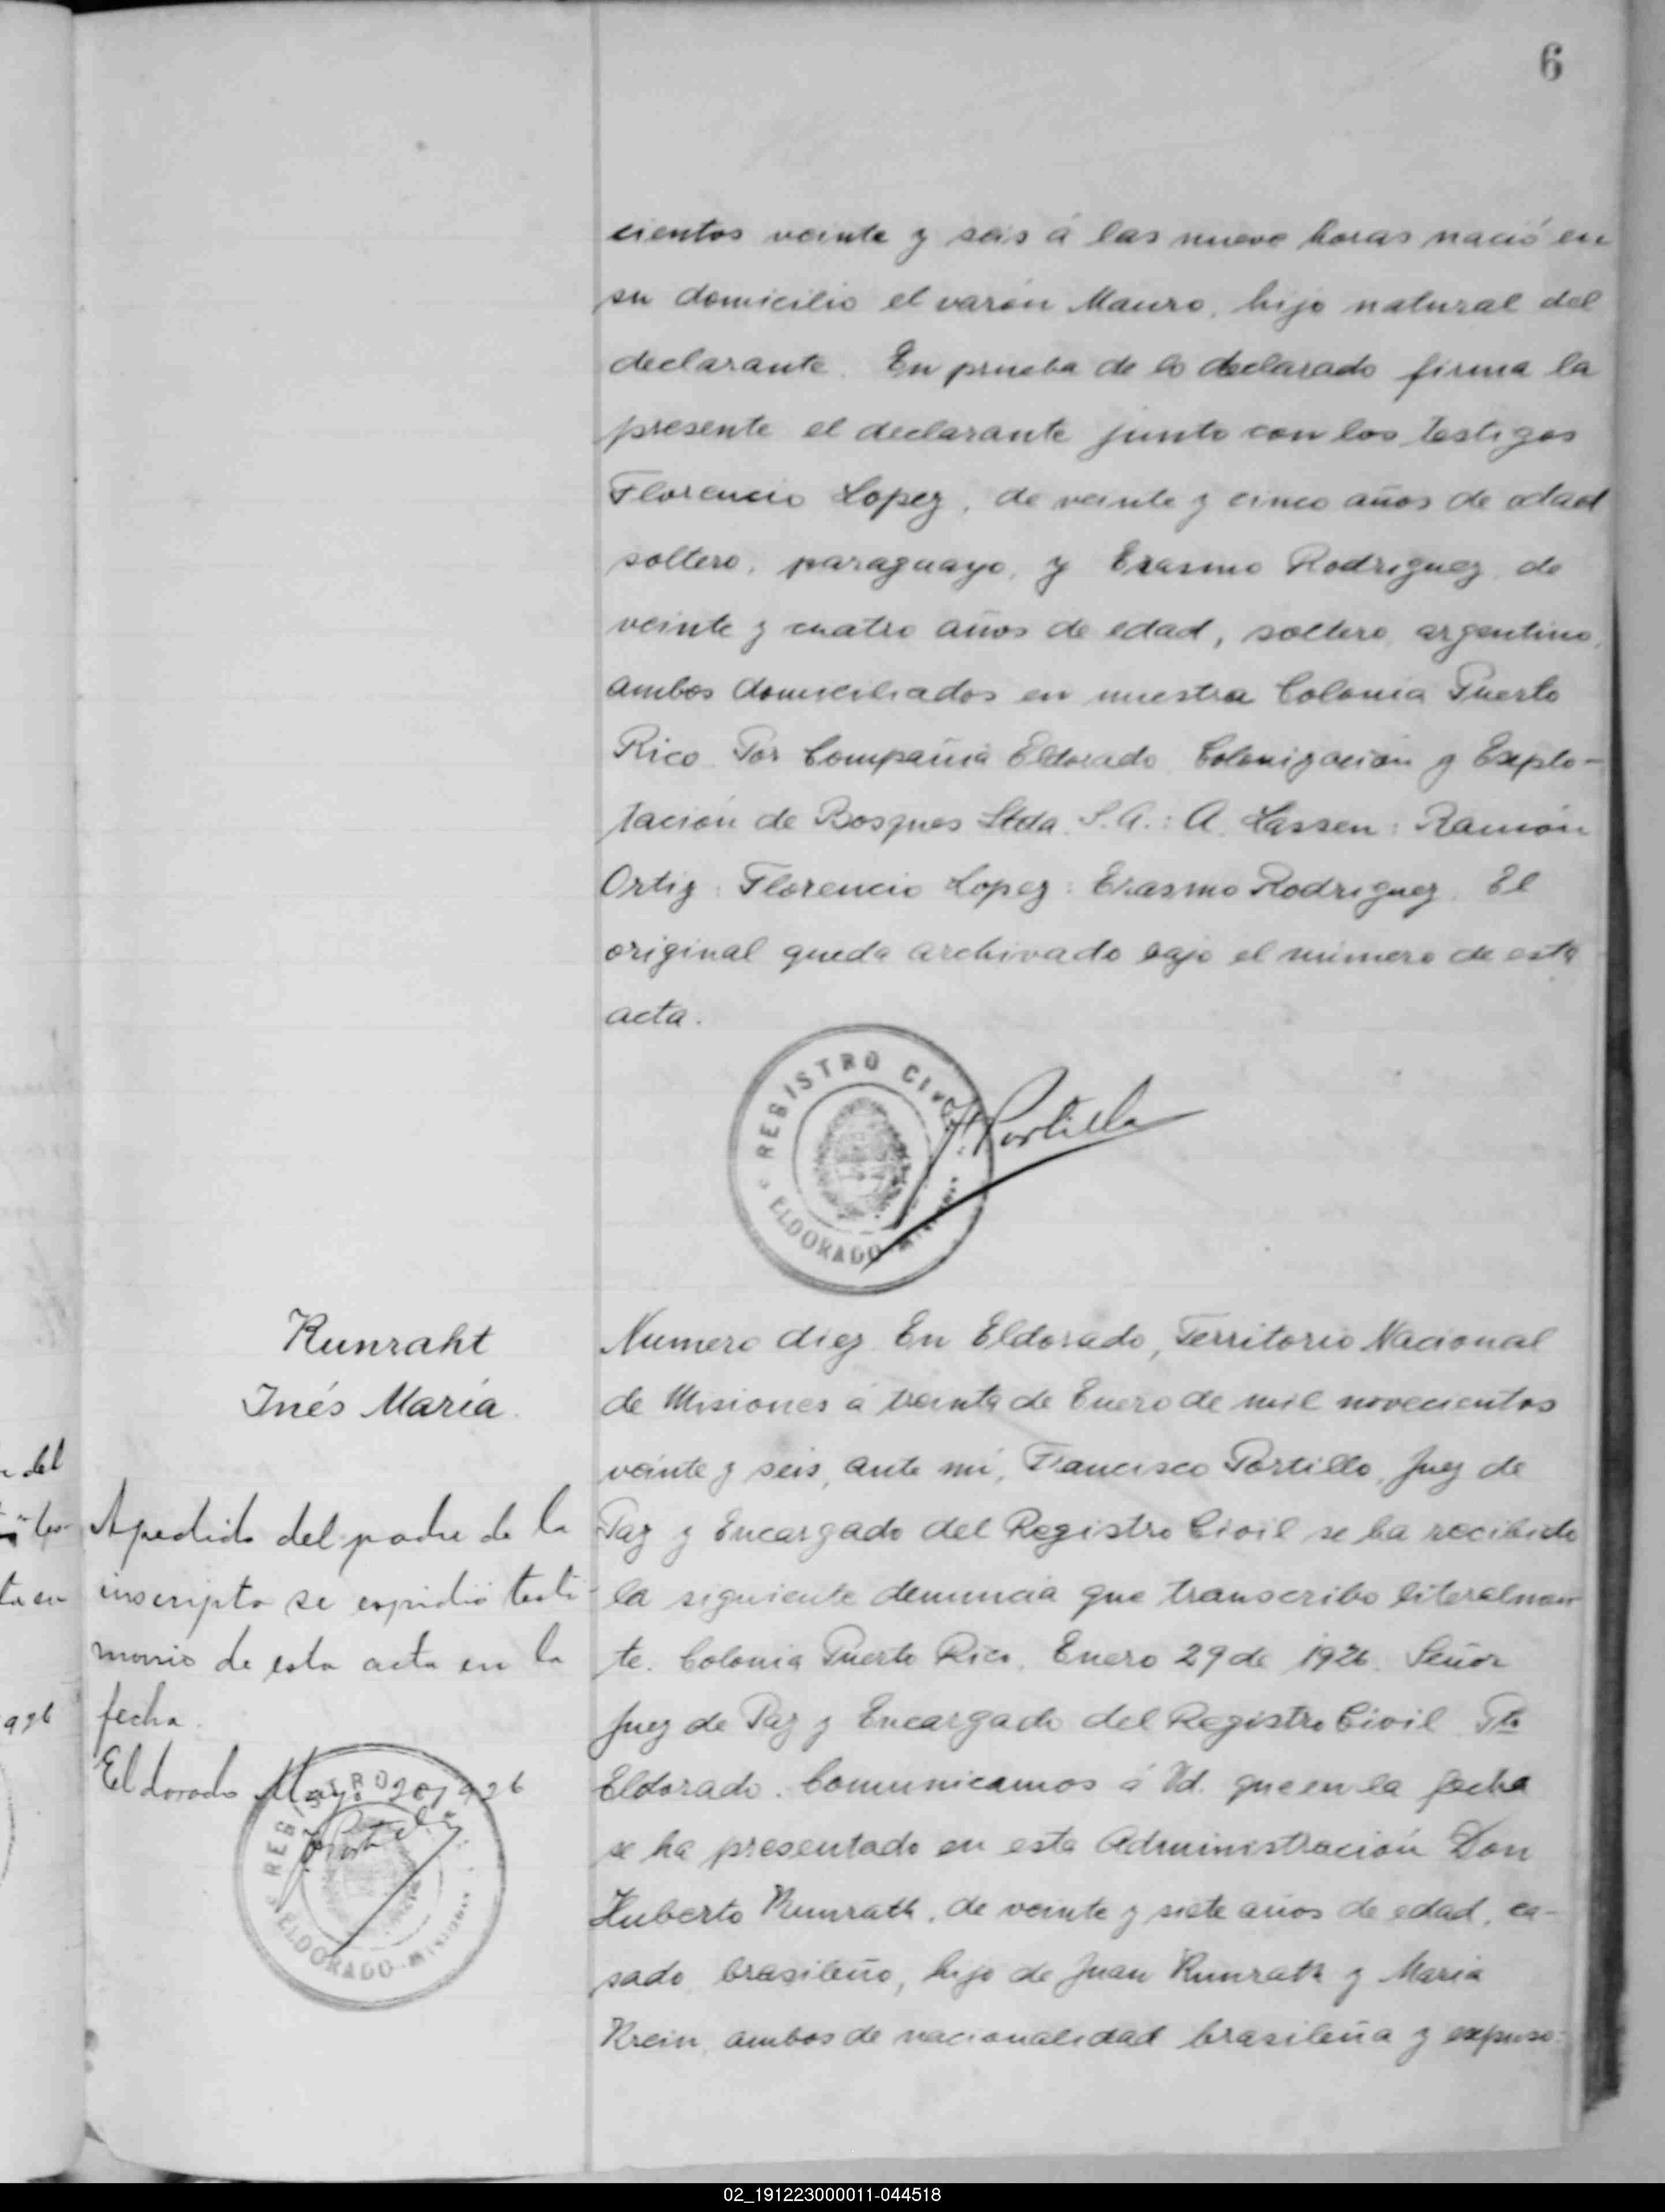 6
cientos veinte y seis á las nueve horas nació en
su domicilio el varón Mauro, hijo natural del
declarante. En prueba de lo declarado firma la
presente el declarante junto con los testigos
Florencio Lopez, de veinte y cinco años de edad
soltero, paraguayo, y Erasmo Rodriguez, de
veinte y cuatro años de edad, soltero, argentino,
ambos domiciliados en nuestra Colonia Puerto
Rico. Por Compañia Eldorado, Colonización y Explo-
tación de Bosques Ltda. S.A.: A. Lassen: Ramón
Ortiz: Florencio Lopez: Erasmo Rodriguez. El
original queda archivado bajo el número de esta
acta.
REGISTRO CIVIL
ELDORADO MISIONES
F. Portillo
Kunraht
Inés María.
Apedido del padre de la
inscripta se expidió testi-
monio de esta acta en la
fecha.
Eldorado Mayo 20/926
F. Portillo
REGISTRO
ELDORADO-MISIONES
Numero diez. En Eldorado, Territorio Nacional
de Misiones á treinta de Enero de mil novecientos
veinte y seis, ante mí, Francisco Portillo, Juez de
Paz y Encargado del Registro Civil se ha recibido
la siguiente denuncia que transcribo literalmen-
te. Colonia Puerto Rico, Enero 29 de 1926. Señor
Juez de Paz y Encargado del Registro Civil. Pto
Eldorado. Comunicamos á Vd. que en la fecha
se ha presentado en esta Administración Don
Huberto Kunrath, de veinte y siete años de edad, ca-
sado, brasileño, hijo de Juan Kunrath y Maria
Krein, ambos de nacionalidad brasileña y expuso:
del
926
02_191223000011-044518